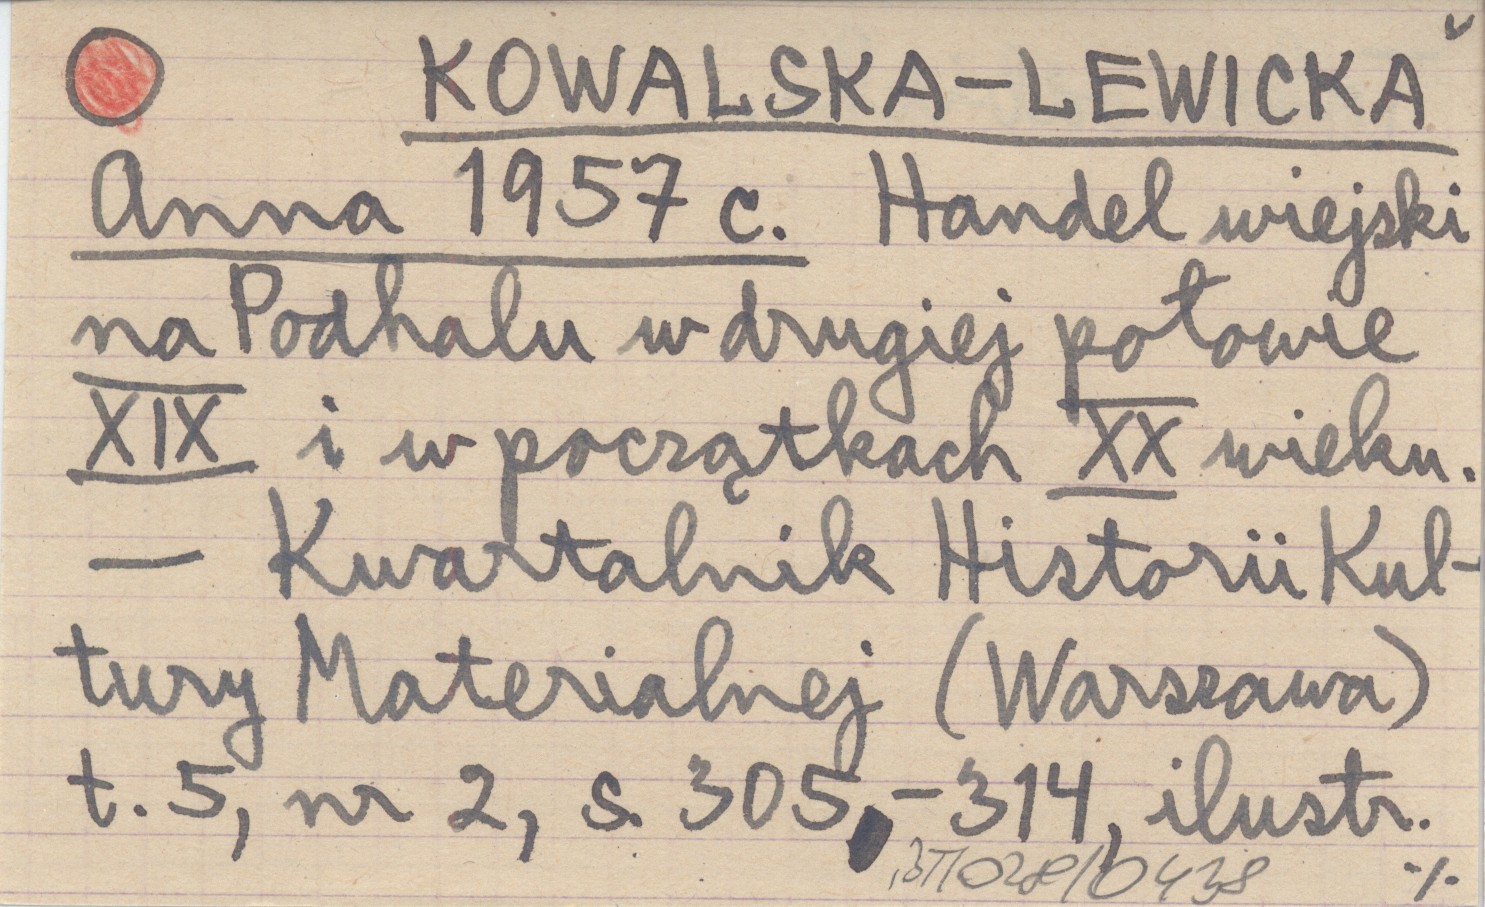 KOWALSKA-LEWICKA
Anna 1957 c. Handel wiejski
na Podhalu w drugiej połowie
XIX i w początkach XX wieku.
— Kwartalnik Historii Kul-
tury Materialnej (Warszawa)
t. 5, nr 2, s. 305,-314, ilustr.
-/-